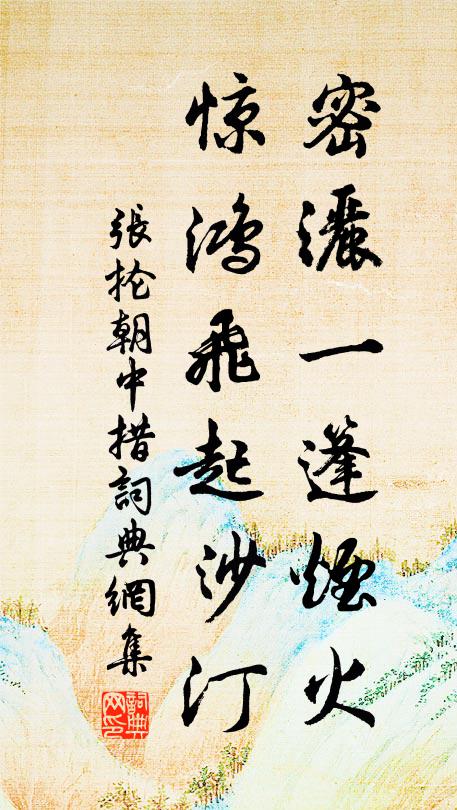 密灑一篷煙火
惊鸿飛起沙汀
張抡朝中措詞典網集
詞典网印